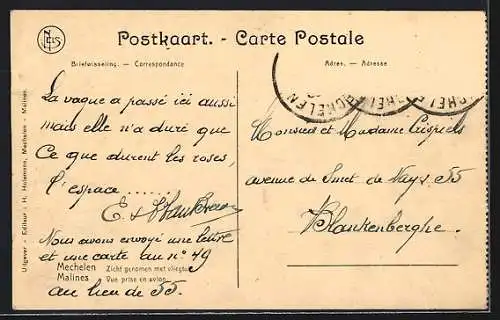 Postkaart. - Carte Postale
Briefwisseling. — Correspondance
Adres. — Adresse
La vague a passé ici aussi
mais elle n'a duré que
Ce que durent les roses,
l'espace ......
E. &
Nous avons envoyé une lettre
et une carte au n° 49
au lieu de 55.
Mechelen Zicht genomen met vliegtuig
Malines Vue prise en avion
Monsieur et Madame Crispiels
avenue de Smet de Naeyer 55
Blankenberghe.
MECHELEN
Uitgever - Editeur : H. Holemans, Mechelen - Malines